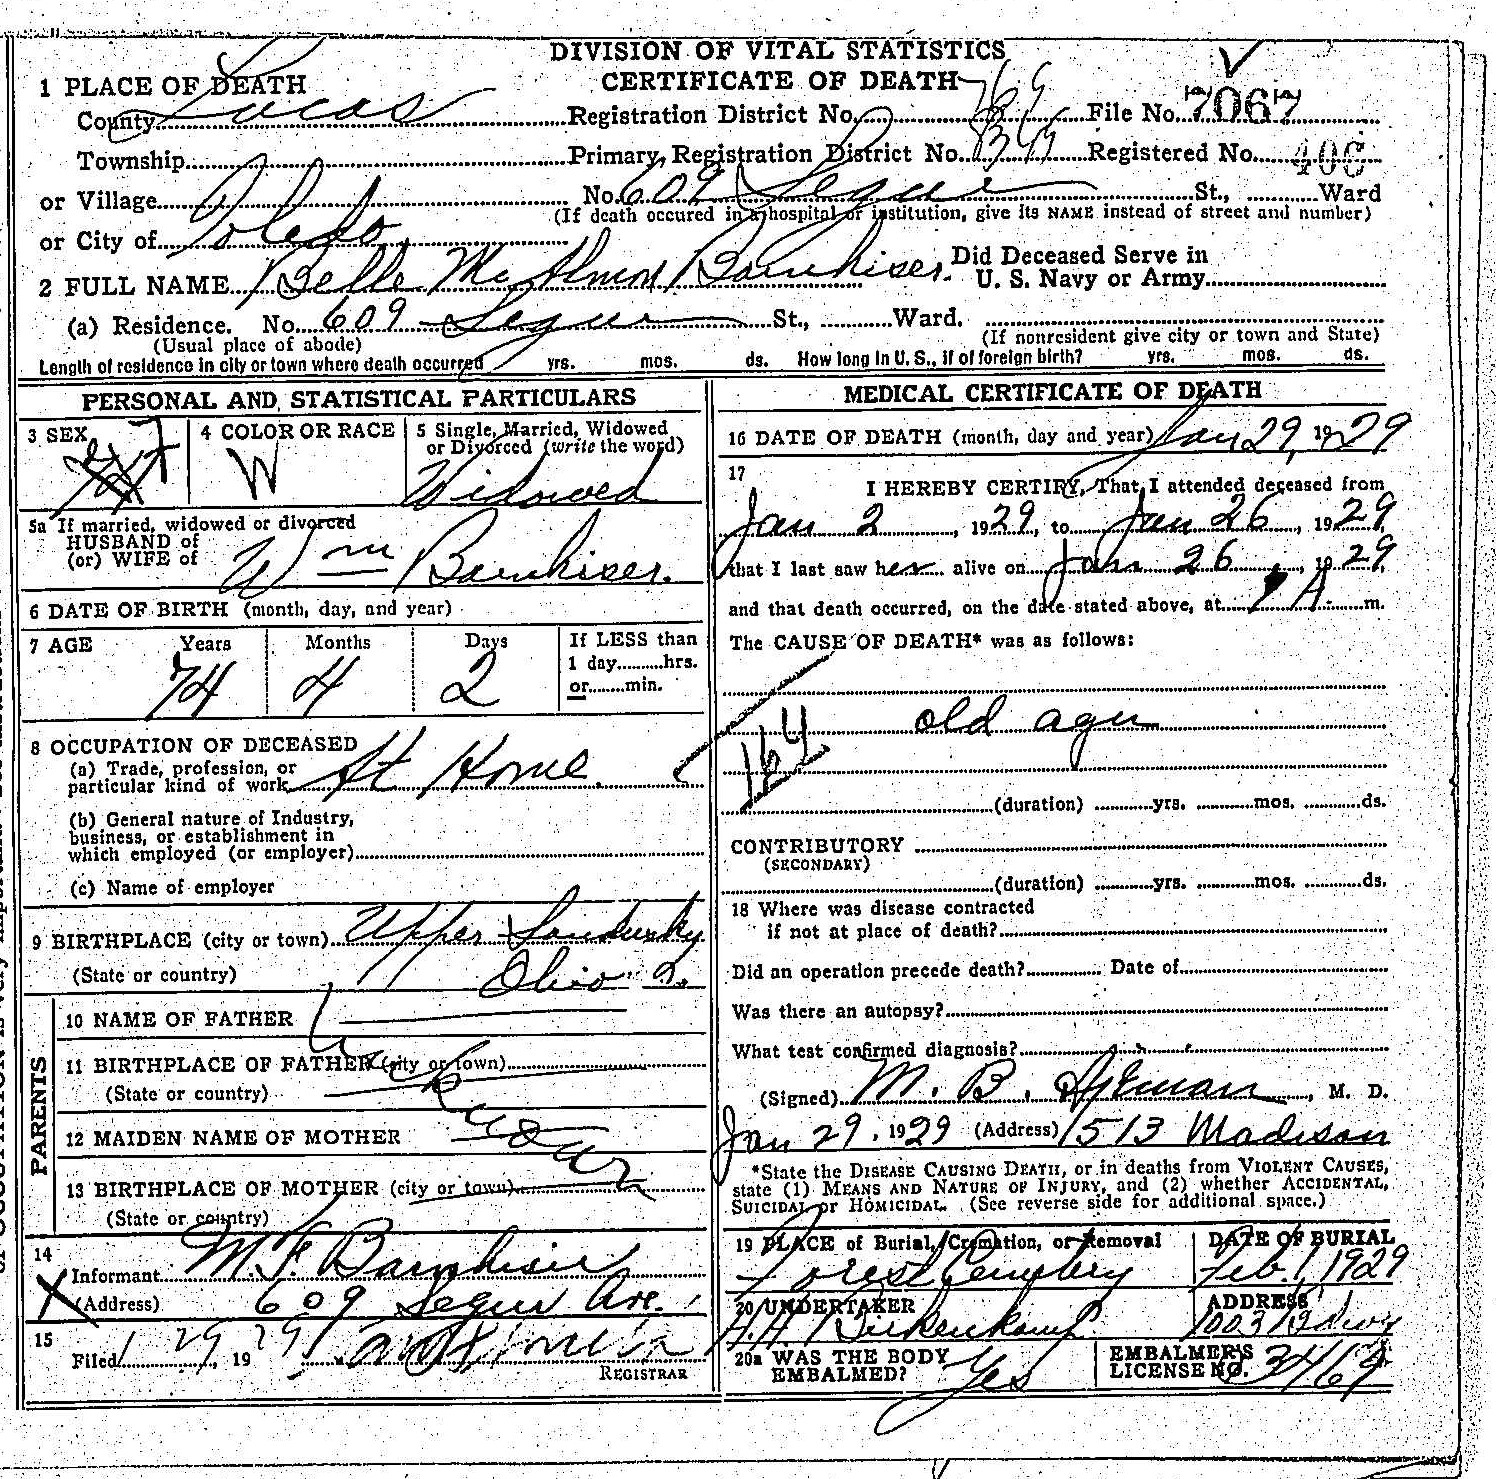 DIVISION OF VITAL STATISTICS
CERTIFICATE OF DEATH
1 PLACE OF DEATH
County Lucas Registration District No. File No. 7067
Township Primary Registration District No. Registered No. 406
or Village No. 609 Segur St., Ward
(If death occured in a hospital or institution, give its NAME instead of street and number)
or City of Toledo
2 FULL NAME Belle Barnhiser Did Deceased Serve in
U. S. Navy or Army
(a) Residence. No. 609 Segur St., Ward.
(Usual place of abode) (If nonresident give city or town and State)
Length of residence in city or town where death occurred yrs. mos. ds. How long in U. S., if of foreign birth? yrs. mos. ds.
PERSONAL AND STATISTICAL PARTICULARS
3 SEX F 4 COLOR OR RACE W 5 Single, Married, Widowed
or Divorced (write the word)
Widowed
5a If married, widowed or divorced
HUSBAND of
(or) WIFE of Wm Barnhiser.
6 DATE OF BIRTH (month, day, and year)
7 AGE Years Months Days If LESS than
1 day hrs.
or min.
74 4 2
8 OCCUPATION OF DECEASED
(a) Trade, profession, or
particular kind of work At Home.
(b) General nature of Industry,
business, or establishment in
which employed (or employer)
(c) Name of employer
9 BIRTHPLACE (city or town) Upper Sandusky
(State or country) Ohio
PARENTS
10 NAME OF FATHER
11 BIRTHPLACE OF FATHER (city or town)
(State or country)
12 MAIDEN NAME OF MOTHER
13 BIRTHPLACE OF MOTHER (city or town)
(State or country)
Unknown
14
Informant M. F. Barnhiser
(Address) 609 Segur Ave.
15
Filed 1 29, 1929
REGISTRAR
MEDICAL CERTIFICATE OF DEATH
16 DATE OF DEATH (month, day and year) Jan 29, 1929
17
I HEREBY CERTIFY, That I attended deceased from
Jan 2, 1929, to Jan 26, 1929
that I last saw her alive on Jan 26, 1929
and that death occurred, on the date stated above, at A. m.
The CAUSE OF DEATH* was as follows:
old age
164
(duration) yrs. mos. ds.
CONTRIBUTORY
(SECONDARY)
(duration) yrs. mos. ds.
18 Where was disease contracted
if not at place of death?
Did an operation precede death? Date of
Was there an autopsy?
What test confirmed diagnosis?
(Signed) M. B. , M. D.
Jan 29, 1929 (Address) 1513 Madison
*State the DISEASE CAUSING DEATH, or in deaths from VIOLENT CAUSES,
state (1) MEANS AND NATURE OF INJURY, and (2) whether ACCIDENTAL,
SUICIDAL or HOMICIDAL. (See reverse side for additional space.)
19 PLACE of Burial, Cremation, or Removal DATE OF BURIAL
Forest Cemetery Feb. 1, 1929
20 UNDERTAKER ADDRESS
H. H. Birkenkamp 1003 Bdwy
20a WAS THE BODY
EMBALMED? Yes EMBALMER'S
LICENSE NO. 3464